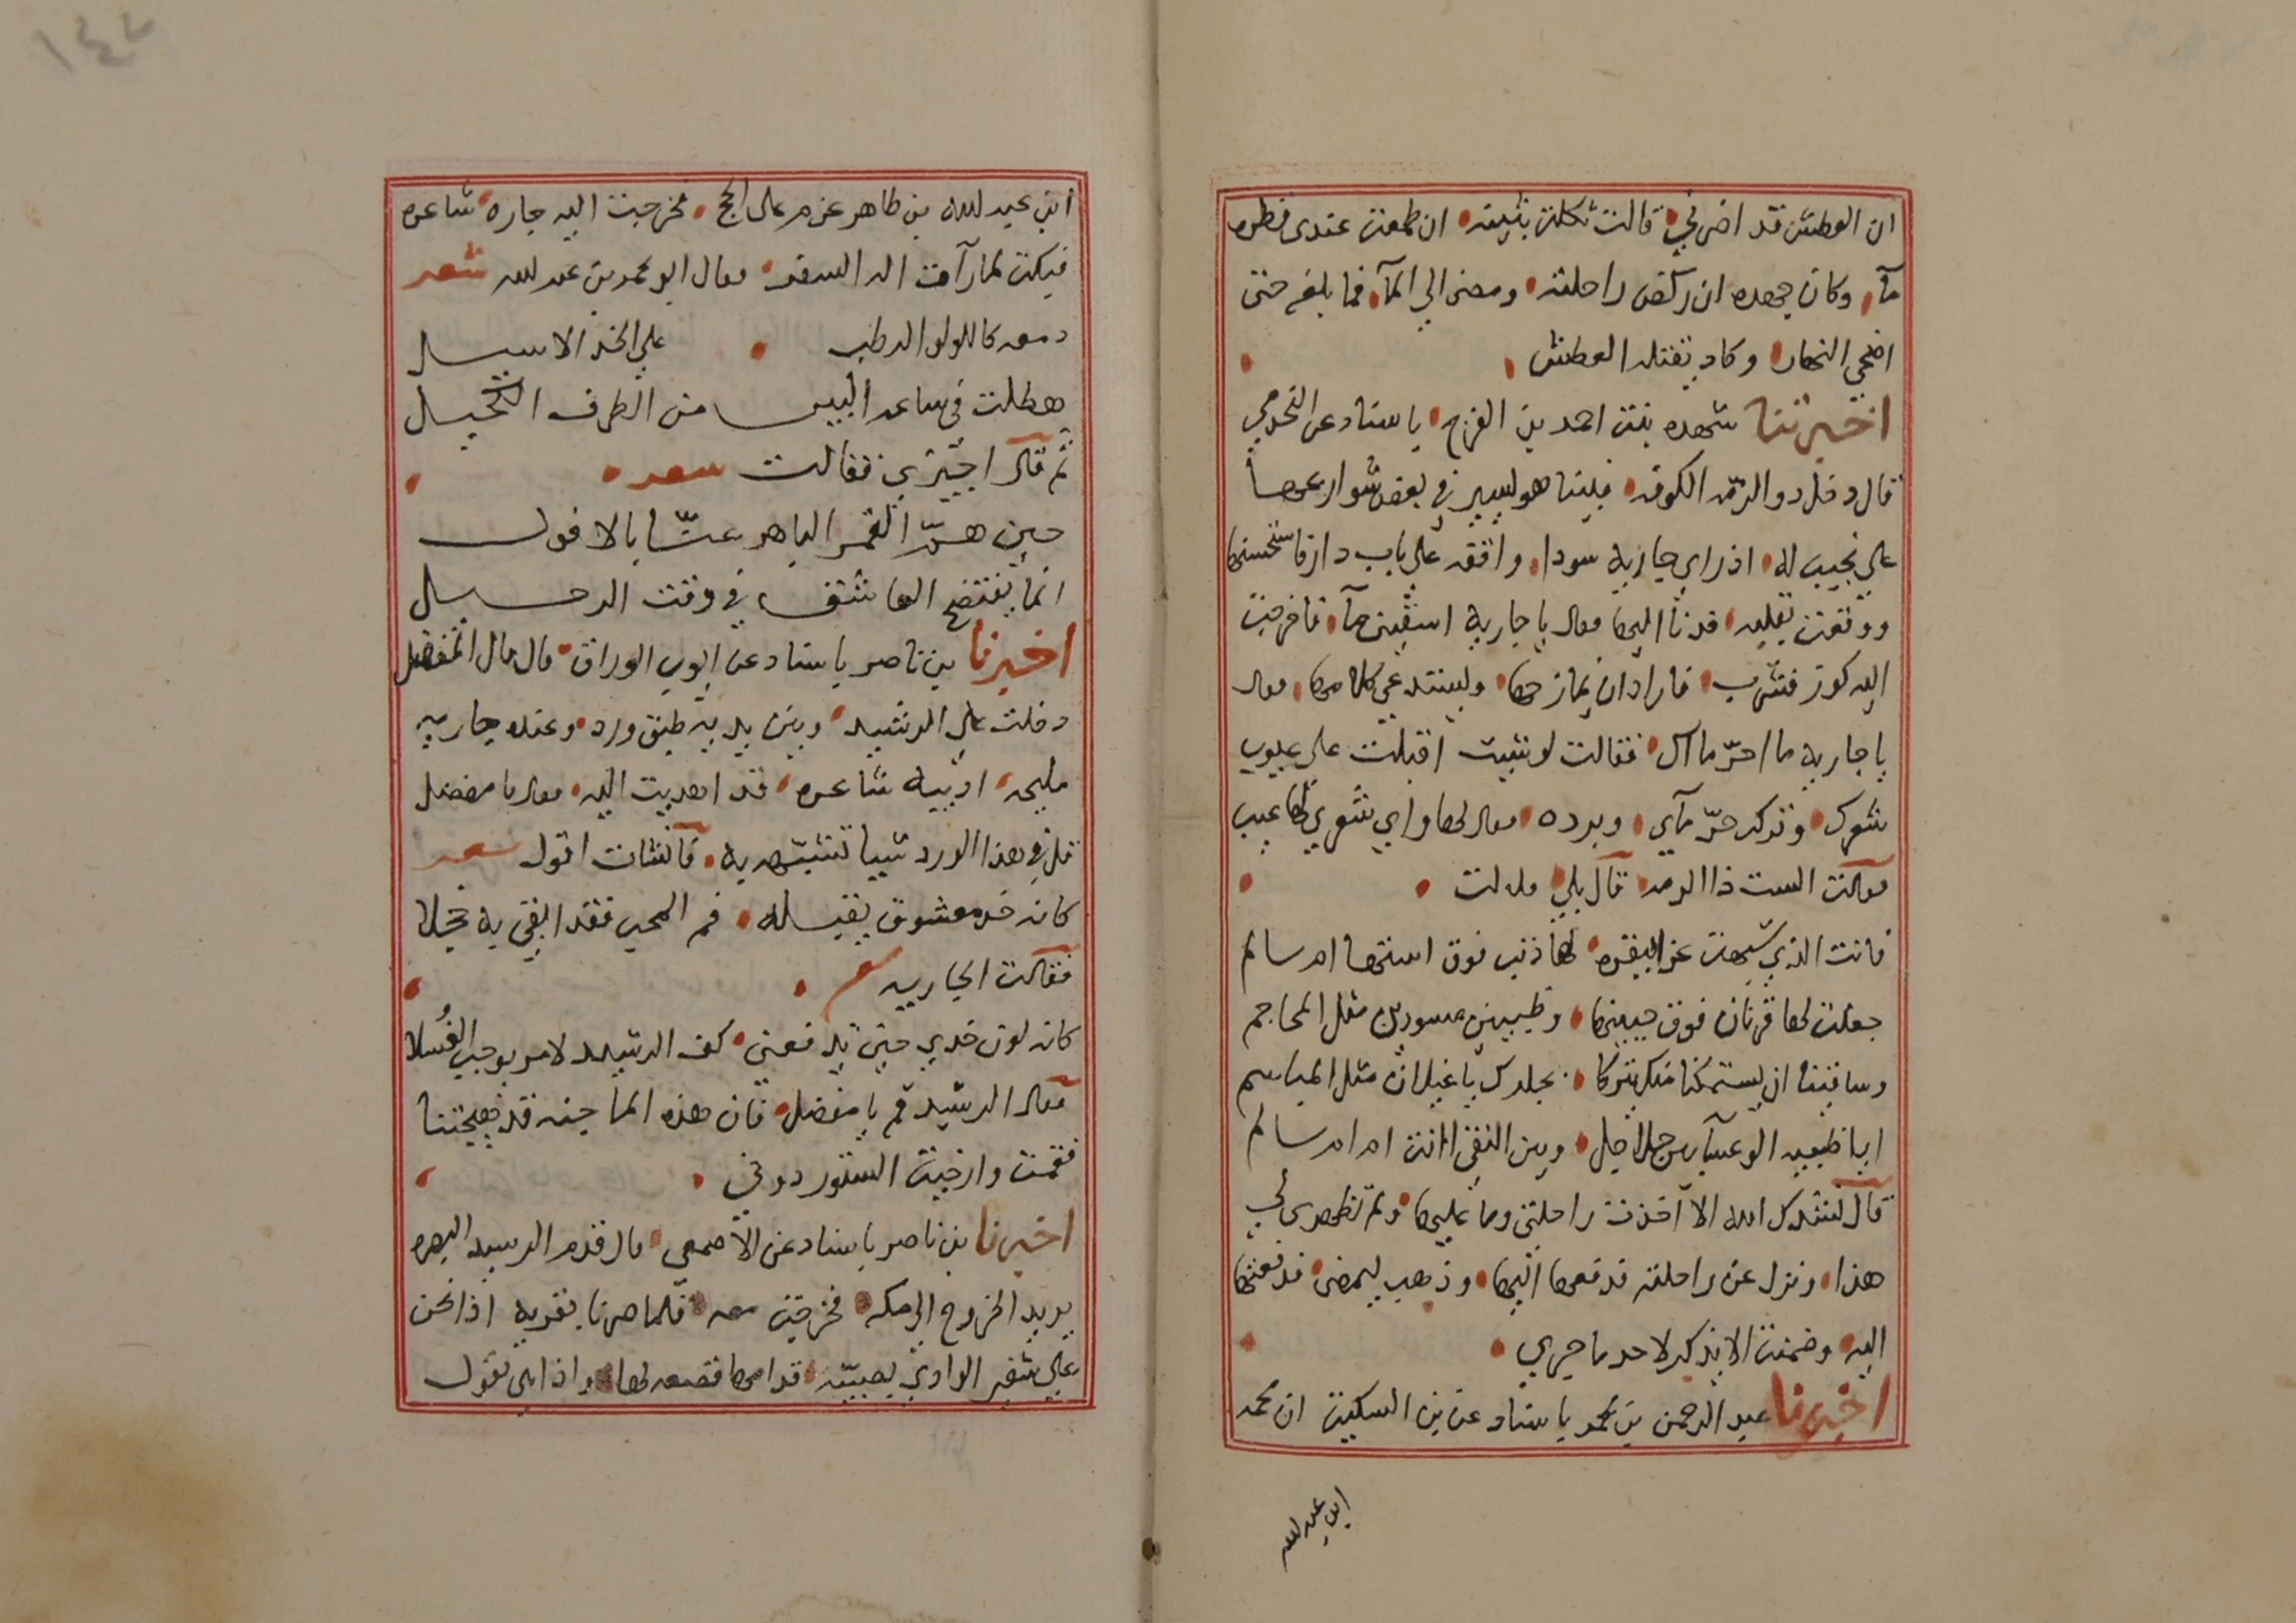 ان العطش قد اضر بي قالت ثكلت بثينه ان طمعت عندي قطرة
مآ وكان جهده ان ركض راحلته ومضى الي المآ فما بلغه حتى
اضحي النهار وكاد يقتله العطش
اخبرتنا شهده بنت احمد بن الفرج باسناد عن
قال دخل ذو الرمه الكوفه فبينا هو يسير في بعض شوارعها
على نجيب له اذ راي جاريه سودا واقفه على باب دار فاستحسنها
ووقعت بقلبه فدنا اليها فقال يا جاريه اسقيني مآ فاخرجت
اليه كوز فشرب فاراد ان يمازحها ويستدعي كلامها فقال
يا جاريه ما احر ماك فقالت لو شيت اقبلت على عيوب
شعرك وتركت حرّ مآي وبرده فقال لها واي شعري لها عيب
فقالت الست ذا الرمه قال بلي قالت
فانت الذي شبهت عنزا بقفره لها ذنب فوق استها ام سالم
جعلت لها قرنان فوق جبينها وطبيين مسودين مثل المحاجم
وساقيين ان يستمكنا منك يتركا بجلدك يا غيلان مثل المياسم
ايا ظبية الوعسآ بين جلاجل وبين النقي اانت ام ام سالم
قال نشدتك الله الا اخذت راحلتي وما عليها ولم تظهري لي
هذا ونزل عن راحلته فدفعها اليها وذهب ليمضى فدفعتها
اليه وضمنت الا يذكر لاحد ما جري
اخبرنا عبد الرحمن بن محمد باسناد عن بن السكيت ان محمد
ابن عبد الله
١٤٢
ابن عبد الله بن طاهر عزم على الحج فخرجت اليه جاره شاعره
فبكت لما رآت اله السفر فقال ابو محمد بن عبد الله شعر
دمعه كاللولو الرطب على الخد الاسيل
هطلت في ساعه البين من الطرف الكحيل
ثم قال اجيزي فقالت شعر
حين همّ القمر الباهر عنّا بالافول
انما يفتضح العاشق في وقت الرحيل
اخبرنا بن ناصر باسناد عن ايوب الوراق قال قال المفضل
دخلت على الرشيد وبين يديه طبق ورد وعنده جاريه
مليحه اديبه شاعره قد اهديت اليه فقال يا مفضل
قل في هذا الورد شيا تشبهه به فانشات اقول شعر
كانه خد معشوق يقبله فم المحب فقد ابقى به خجلا
فقالت الجاريه شعر
كانه لون خدي حين تدفعني كف الرشيد لامر يوجب الغُسلا
فقال الرشيد قم يا مفضل فان هذه الماجنه قد هيجتنا
فقمت وارخيت الستور دوني
اخبرنا بن ناصر باسناد عن الاصمعي قال قدم الرشيد البصره
يريد الخروج الى مكه فخرجت معه فلما صرنا بقريه اذا نحن
على شفير الوادي بصبيّه قدامها قصعه لها واذا هي تقول